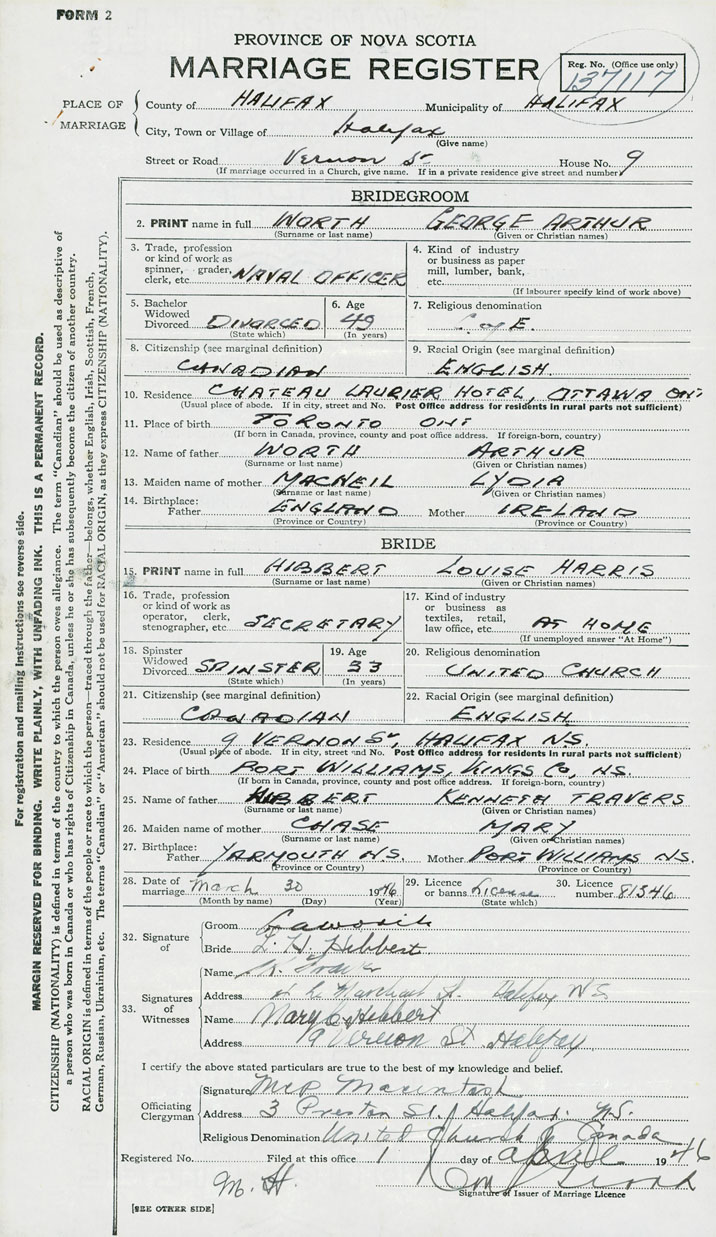 FORM 2
PROVINCE OF NOVA SCOTIA
MARRIAGE REGISTER
Reg. No. (Office use only)
137117
PLACE OF MARRIAGE
County of HALIFAX Municipality of HALIFAX
City, Town or Village of Halifax
(Give name)
Street or Road Vernon St House No. 9
(If marriage occurred in a Church, give name. If in a private residence give street and number)
BRIDEGROOM
2. PRINT name in full WORTH GEORGE ARTHUR
(Surname or last name) (Given or Christian names)
3. Trade, profession or kind of work as spinner, grader, clerk, etc. NAVAL OFFICER
4. Kind of industry or business as paper mill, lumber, bank, etc.
(If labourer specify kind of work above)
5. Bachelor Widowed Divorced DIVORCED
(State which)
6. Age 49
(In years)
7. Religious denomination C of E.
8. Citizenship (see marginal definition) CANADIAN
9. Racial Origin (see marginal definition) ENGLISH.
10. Residence CHATEAU LAURIER HOTEL, OTTAWA ONT
(Usual place of abode. If in city, street and No. Post Office address for residents in rural parts not sufficient)
11. Place of birth TORONTO ONT
(If born in Canada, province, county and post office address. If foreign-born, country)
12. Name of father WORTH ARTHUR
(Surname or last name) (Given or Christian names)
13. Maiden name of mother MACNEIL LYDIA
(Surname or last name) (Given or Christian names)
14. Birthplace: Father ENGLAND Mother IRELAND
(Province or Country) (Province or Country)
BRIDE
15. PRINT name in full HIBBERT LOUISE HARRIS
(Surname or last name) (Given or Christian names)
16. Trade, profession or kind of work as operator, clerk, stenographer, etc. SECRETARY
17. Kind of industry or business as textiles, retail, law office, etc. AT HOME
(If unemployed answer "At Home")
18. Spinster Widowed Divorced SPINSTER
(State which)
19. Age 33
(In years)
20. Religious denomination UNITED CHURCH
21. Citizenship (see marginal definition) CANADIAN
22. Racial Origin (see marginal definition) ENGLISH
23. Residence 9 VERNON St, HALIFAX N.S.
(Usual place of abode. If in city, street and No. Post Office address for residents in rural parts not sufficient)
24. Place of birth PORT WILLIAMS, KINGS CO, N.S.
(If born in Canada, province, county and post office address. If foreign-born, country)
25. Name of father HIBBERT KENNETH TRAVERS
(Surname or last name) (Given or Christian names)
26. Maiden name of mother CHASE MARY
(Surname or last name) (Given or Christian names)
27. Birthplace: Father YARMOUTH N.S. Mother PORT WILLIAMS N.S.
(Province or Country) (Province or Country)
28. Date of marriage March 30 1946
(Month by name) (Day) (Year)
29. Licence or banns License
(State which)
30. Licence number 81346
32. Signature of
Groom
Bride L. H. Hibbert
33. Signatures of Witnesses
Name
Address Halifax N.S.
Name Mary C. Hibbert
Address 9 Vernon St. Halifax
I certify the above stated particulars are true to the best of my knowledge and belief.
Officiating Clergyman
Signature Macintosh
Address 3 Preston St., Halifax. N.S.
Religious Denomination United Church of Canada
Registered No. Filed at this office 1 day of April 1946
M. H.
Signature of Issuer of Marriage Licence
[SEE OTHER SIDE]
For registration and mailing instructions see reverse side.
MARGIN RESERVED FOR BINDING. WRITE PLAINLY, WITH UNFADING INK. THIS IS A PERMANENT RECORD.
CITIZENSHIP (NATIONALITY) is defined in terms of the country to which the person owes allegiance. The term "Canadian" should be used as descriptive of
a person who was born in Canada or who has rights of Citizenship in Canada, unless he or she has subsequently become the citizen of another country.
RACIAL ORIGIN is defined in terms of the people or race to which the person—traced through the father—belongs, whether English, Irish, Scottish, French,
German, Russian, Ukrainian, etc. The terms "Canadian" or "American" should not be used for RACIAL ORIGIN, as they express CITIZENSHIP (NATIONALITY).